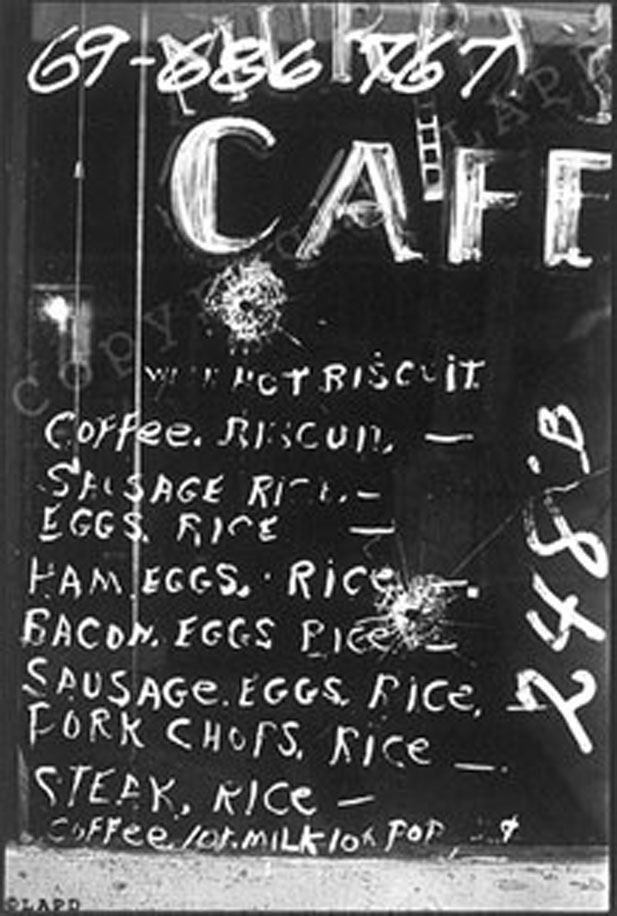 69-686 767
CAFE
HOT BISCUIT
Coffee. BISCUIT. —
SAUSAGE RICE. –
EGGS. RICE —
HAM. EGGS. RICE —.
BACON. EGGS RICE —
SAUSAGE. EGGS. RICE. —
PORK CHOPS. RICE —.
STEAK, RICE —
COFFEE/Or. MILK 10¢ POP ¢
248 B.
COPYRIGHT LAPD
©LAPD